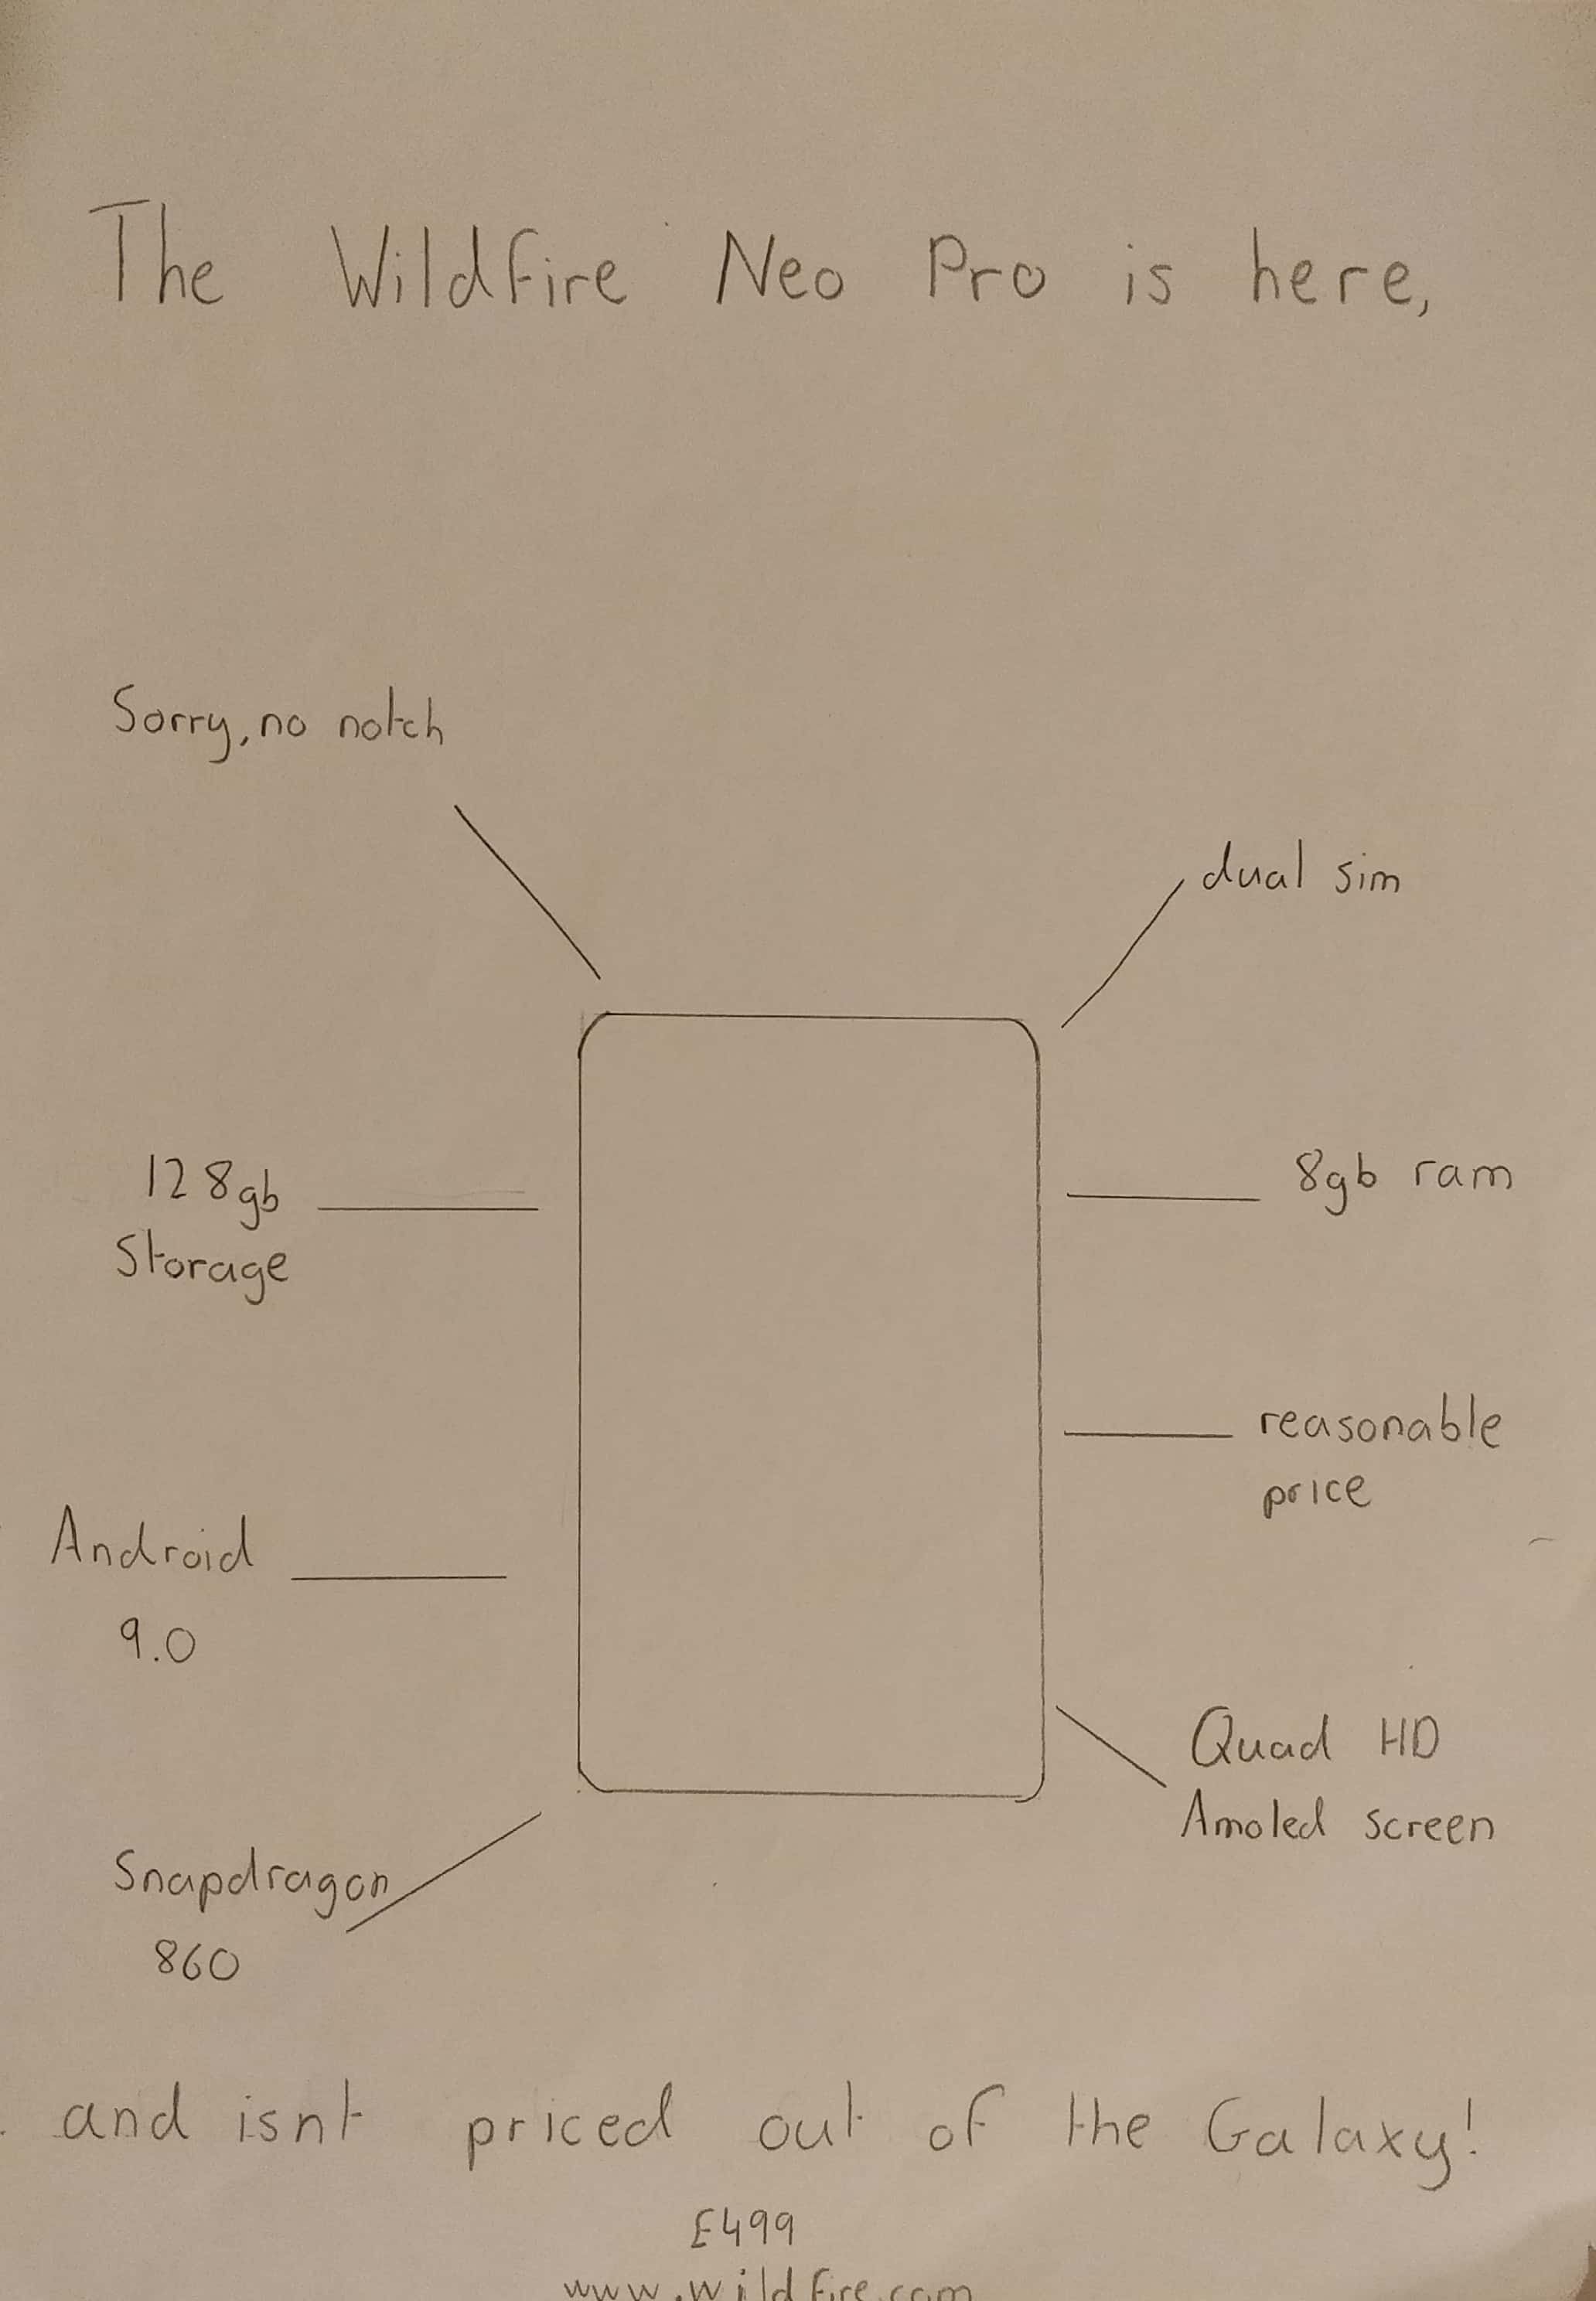 The Wildfire Neo Pro is here,
Sorry, no notch
dual sim
128gb
Storage
8gb ram
reasonable
price
Android
9.0
Quad HD
Amoled screen
Snapdragon
860
and isnt priced out of the Galaxy!
£499
www.wildfire.com